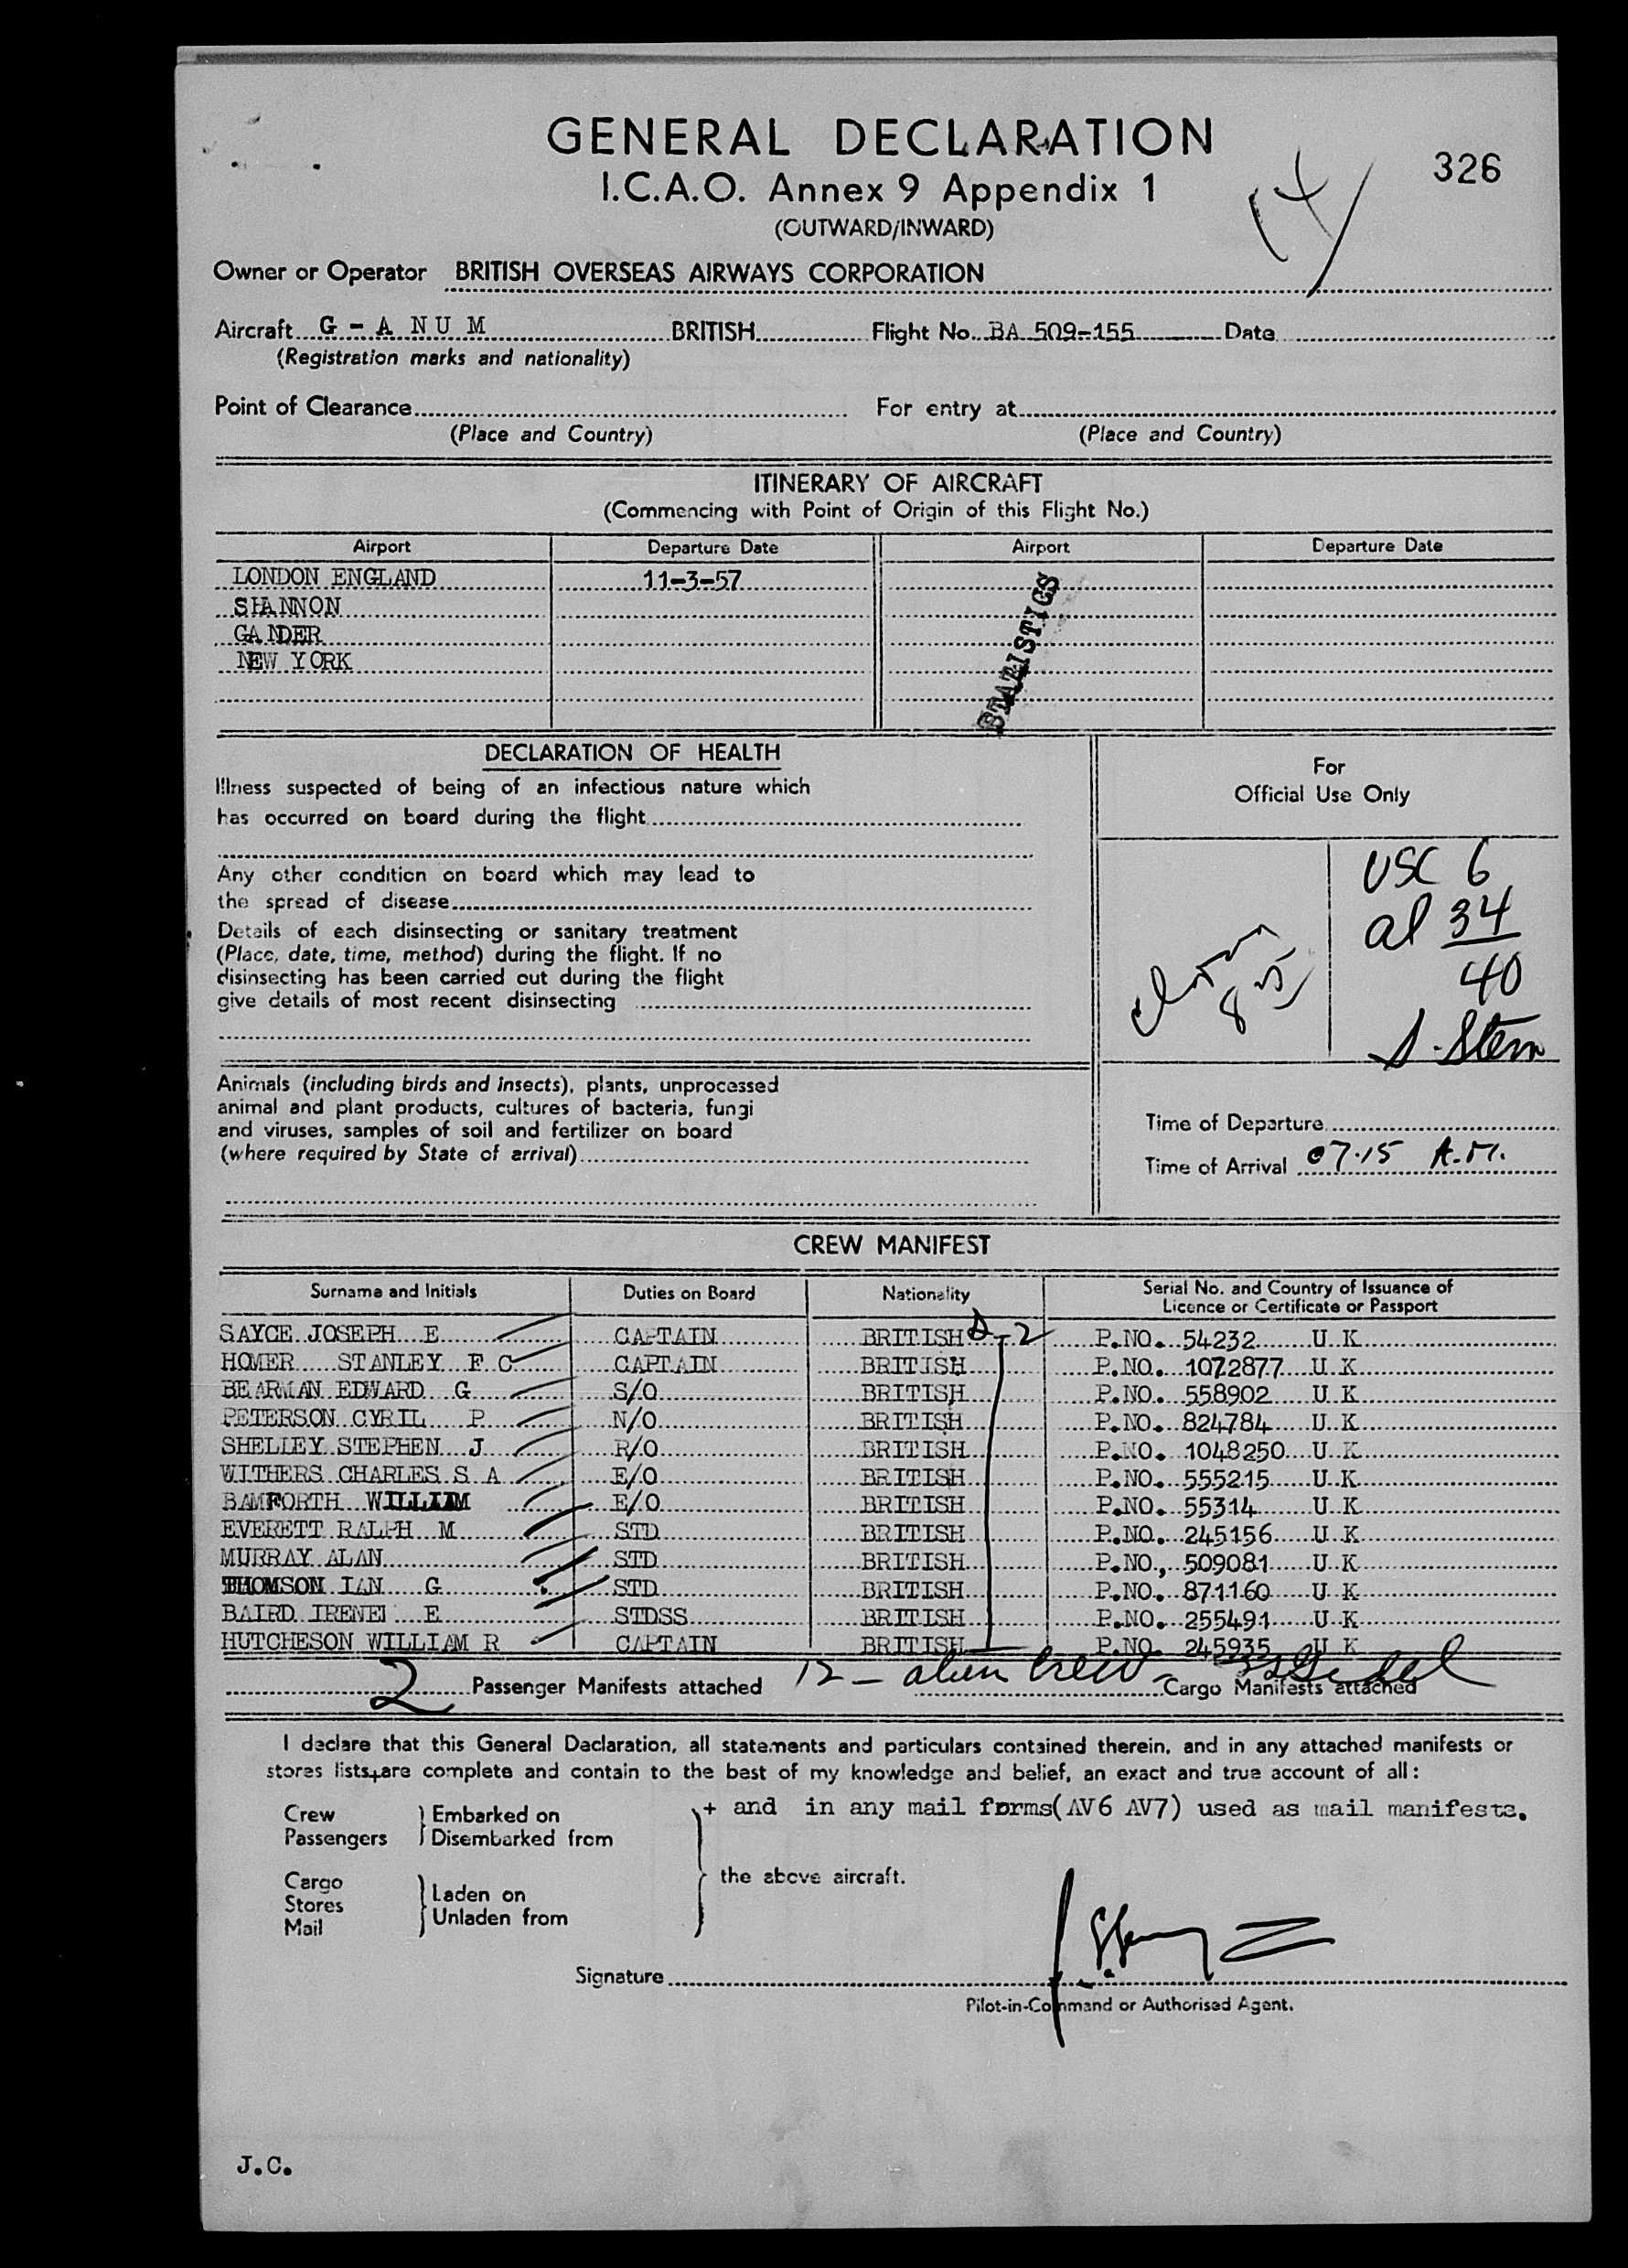 GENERAL DECLARATION
326
I.C.A.O. Annex 9 Appendix 1
(OUTWARD/INWARD)
14/
Owner or Operator BRITISH OVERSEAS AIRWAYS CORPORATION
Aircraft G - A N U M BRITISH Flight No. BA 509-155 Date
(Registration marks and nationality)
Point of Clearance For entry at
(Place and Country) (Place and Country)
ITINERARY OF AIRCRAFT
(Commencing with Point of Origin of this Flight No.)
Airport Departure Date Airport Departure Date
LONDON ENGLAND 11-3-57
SHANNON
GANDER
NEW YORK
STATISTICS
DECLARATION OF HEALTH
Illness suspected of being of an infectious nature which
has occurred on board during the flight
Any other condition on board which may lead to
the spread of disease
Details of each disinsecting or sanitary treatment
(Place, date, time, method) during the flight. If no
disinsecting has been carried out during the flight
give details of most recent disinsecting
Animals (including birds and insects), plants, unprocessed
animal and plant products, cultures of bacteria, fungi
and viruses, samples of soil and fertilizer on board
(where required by State of arrival)
For
Official Use Only
USC 6
al 34
40
S. Stern
Time of Departure
Time of Arrival 07.15 A.M.
CREW MANIFEST
Surname and Initials Duties on Board Nationality Serial No. and Country of Issuance of
Licence or Certificate or Passport
SAYCE JOSEPH E CAPTAIN BRITISH D-2 P.NO. 54232 U K
HOMER STANLEY F C CAPTAIN BRITISH P.NO. 1072877 U K
BEARMAN EDWARD G S/O BRITISH P.NO. 558902 U K
PETERSON CYRIL P N/O BRITISH P.NO. 824784 U K
SHELLEY STEPHEN J R/O BRITISH P.NO. 1048250 U K
WITHERS CHARLES S A E/O BRITISH P.NO. 555215 U K
BAMFORTH WILLIAM E/O BRITISH P.NO. 55314 U K
EVERETT RALPH M STD BRITISH P.NO. 245156 U K
MURRAY ALAN STD BRITISH P.NO., 509081 U K
THOMSON IAN G STD BRITISH P.NO. 871160 U K
BAIRD IRENE E STDSS BRITISH P.NO. 255491 U K
HUTCHESON WILLIAM R CAPTAIN BRITISH P.NO. 245935 U K
2 Passenger Manifests attached 12 - alien crew Cargo Manifests attached
I declare that this General Declaration, all statements and particulars contained therein, and in any attached manifests or
stores lists,+are complete and contain to the best of my knowledge and belief, an exact and true account of all:
+ and in any mail forms(AV6 AV7) used as mail manifests.
Crew Embarked on
Passengers Disembarked from
the above aircraft.
Cargo
Stores Laden on
Mail Unladen from
Signature
Pilot-in-Command or Authorised Agent.
J.C.